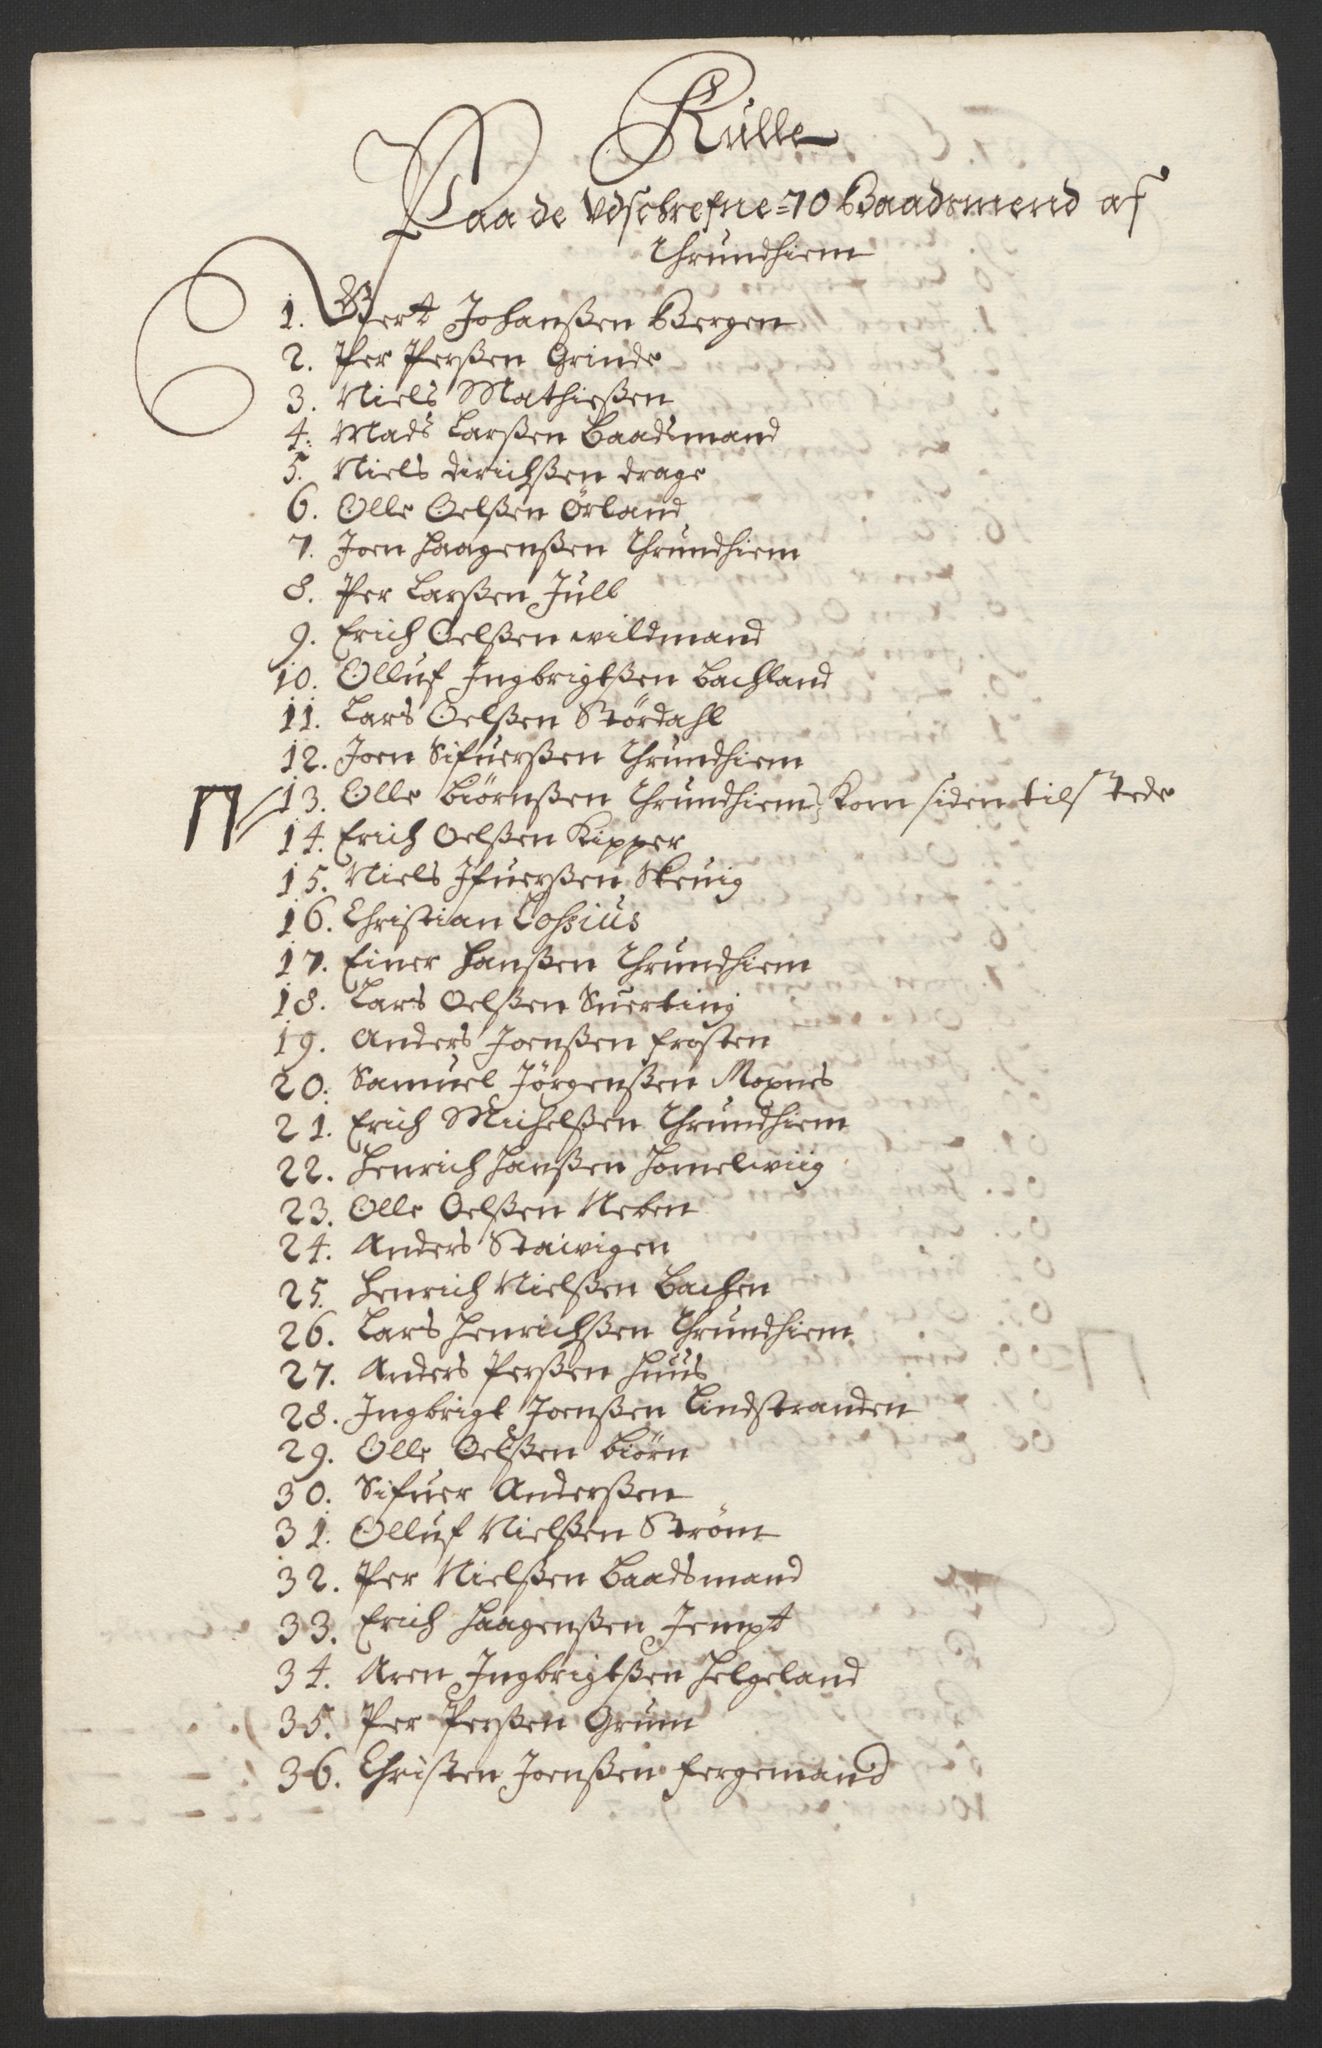 Rulle
Paa de Udschrefne 70 Baadsmend af
Thrundhiem
1. Gert Johanßen Bergen
2. Per Perßen Grinde
3. Niels Mathießen
4. Mads Larßen Baadsmand
5. Niels dirichßen drage
6. Olle Oelßen Örland
7. Joen Haagenßen Thrundhiem
8. Per Larßen Jull
9. Erich Oelßen wildmand
10. Olluf Ingbrigtßen Bachland
11. Lars Oelßen Stördahl
12. Joen Sifuerßen Thrundhiem
13. Olle Biörnßen Thrundhiem, Kom siden tilstede
14. Erich Oelßen Kipper
15. Niels Ifuerßen Skeuig
16. Christian Coßius
17. Einer Hanßen Thrundhiem
18. Lars Oelßen Suerting
19. Anders Joenßen frosten
20. Samuel Jörgenßen Moxnes
21. Erich Michelßen Thrundhiem
22. Henrich Hanßen Homelwiig
23. Olle Oelßen Neben
24. Anders Staiwigen
25. Henrich Nielßen Bachen
26. Lars Henrichßen Thrundhiem
27. Anders Perßen Huus
28. Ingbrigt Joenßen Lindstranden
29. Olle Oelßen Biörn
30. Sifuer Anderßen
31. Olluf Nielßen Ström
32. Per Nielßen Baadsmand
33. Erich Haagenßen Jempt
34. Aren Ingbrigtßen Helgeland
35. Per Perßen Grum
36. Christen Joenßen fergemand